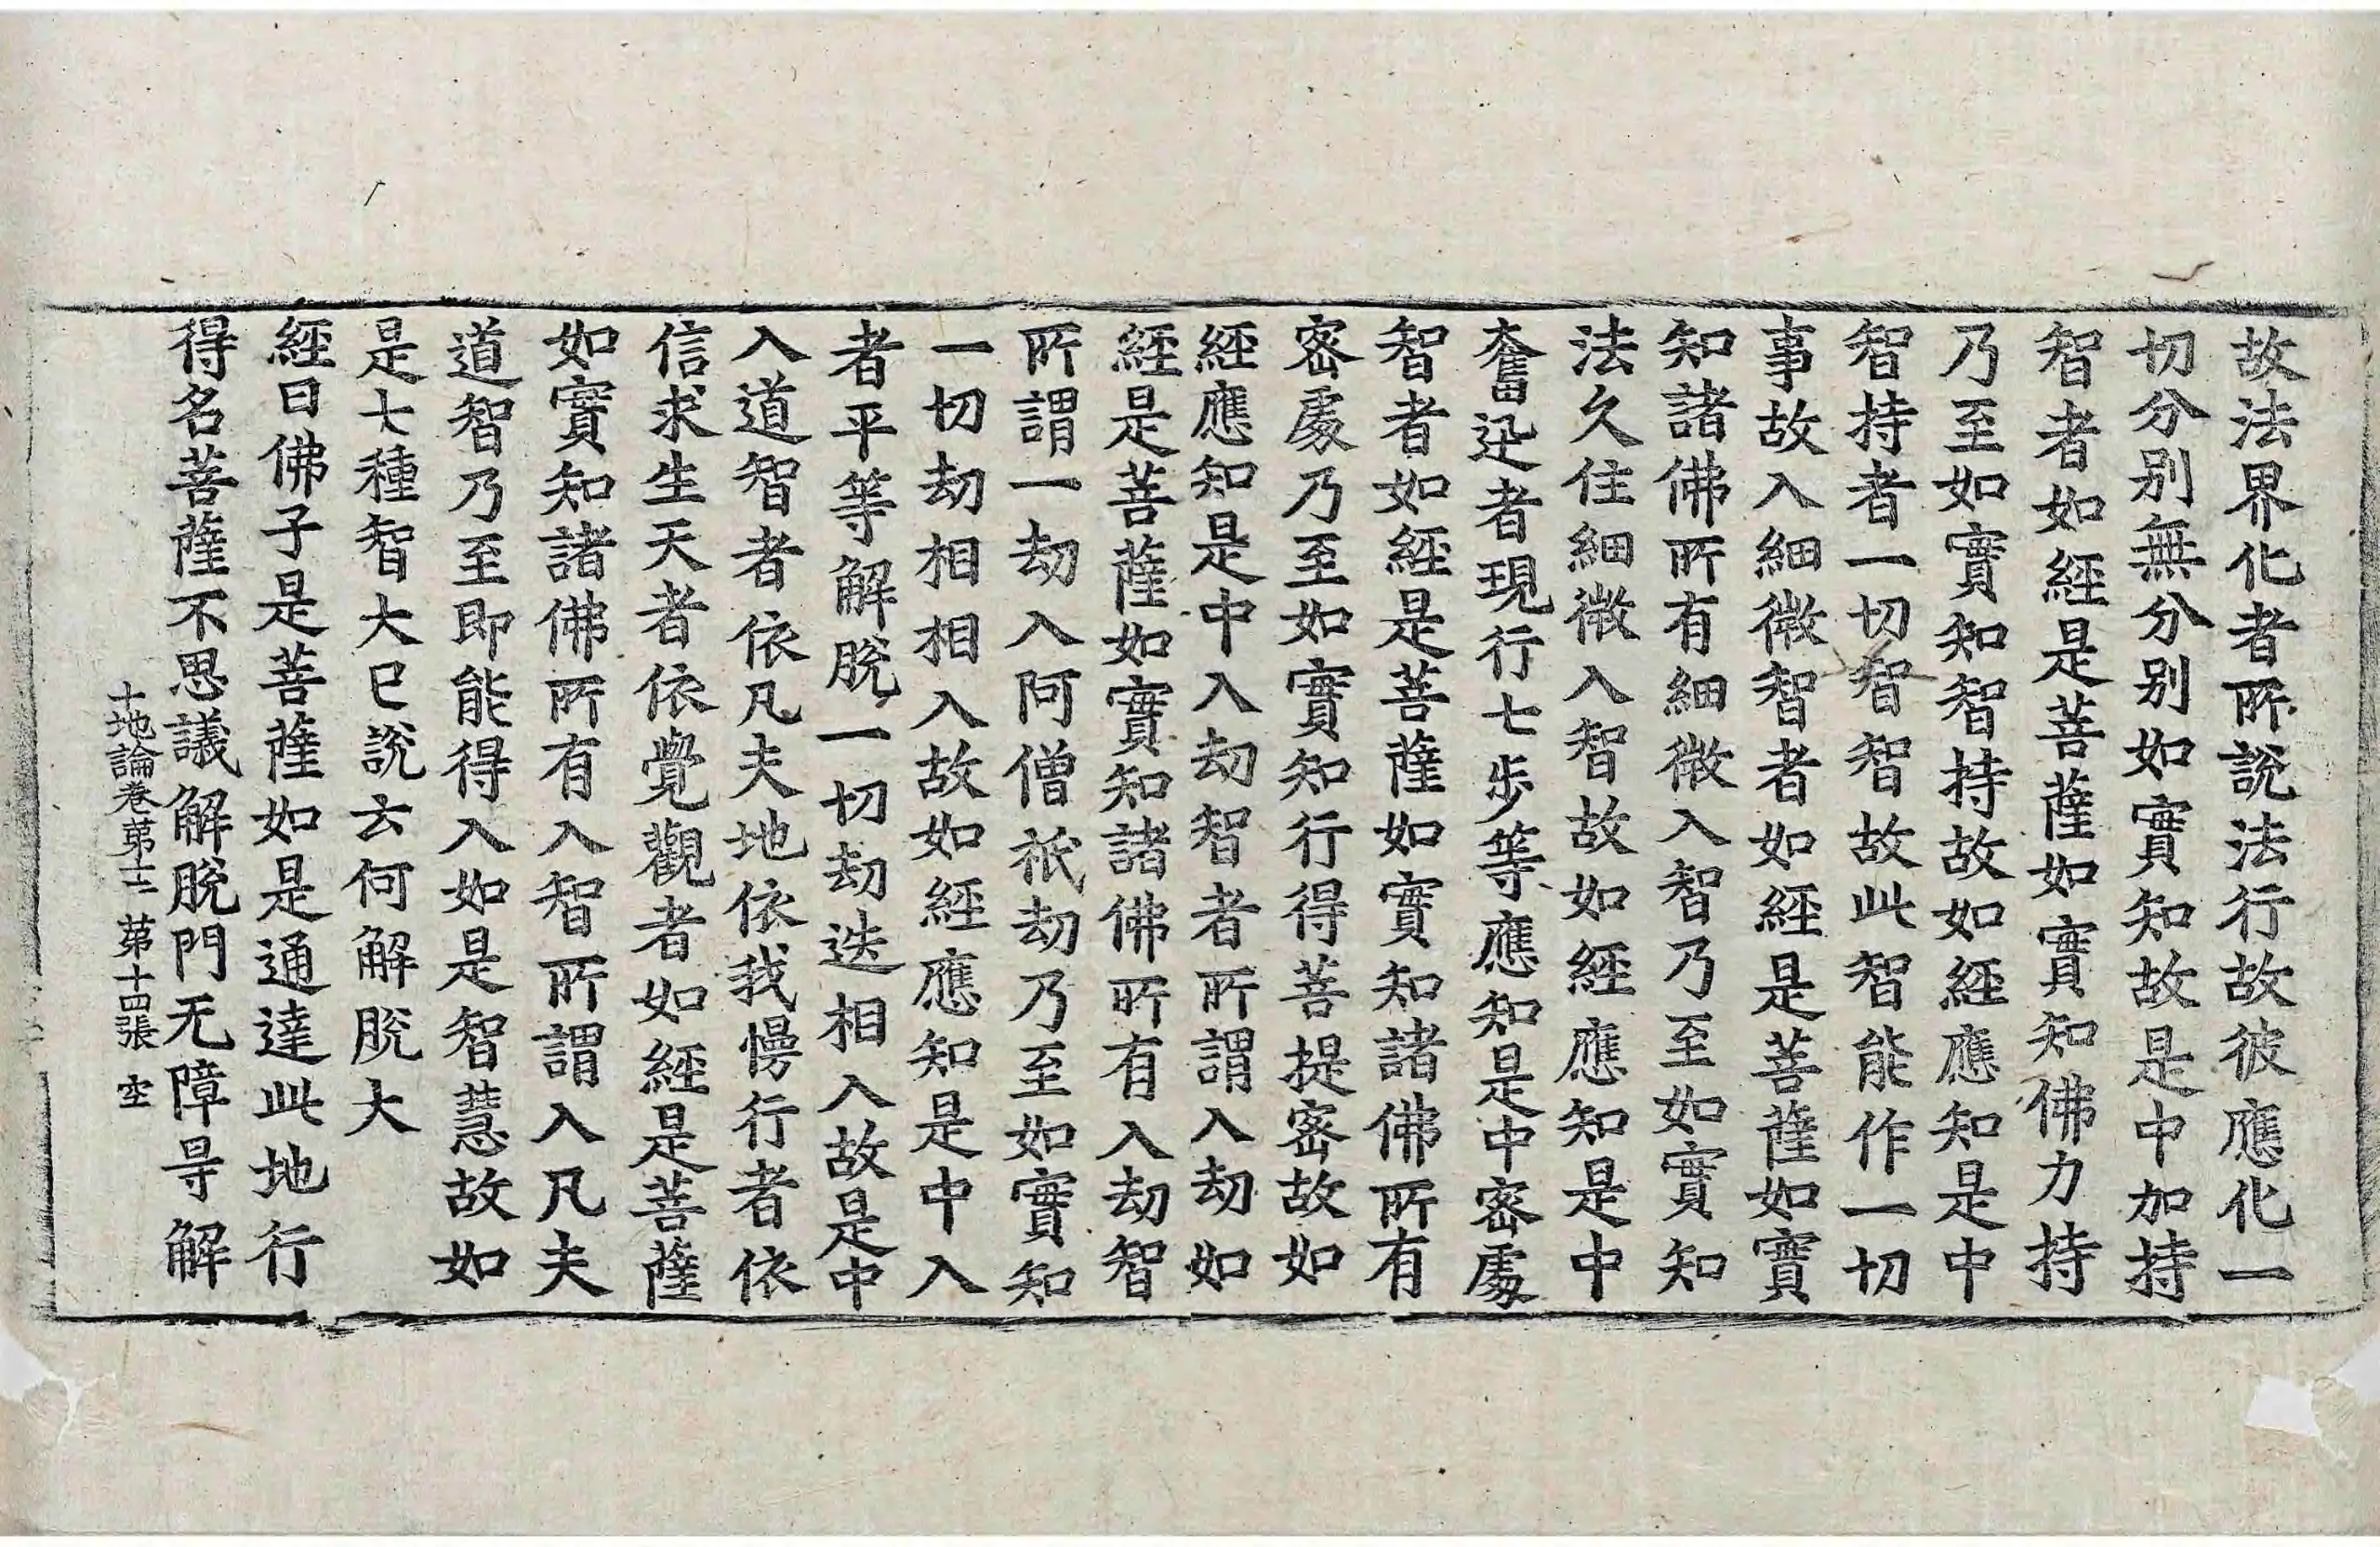 故法界化者所說法行故彼應化一
切分別無分別如實知故是中加持
智者如經是菩薩如實知佛力持
乃至如實知智持故如經應知是中
智持者一切智智故此智能作一切
事故入細微智者如經是菩薩如實
知諸佛所有細微入智乃至如實知
法久住細微入智故如經應知是中
奮迅者現行七步等應知是中密處
智者如經是菩薩如實知諸佛所有
密處乃至如實知行得菩提密故如
經應知是中入劫智者所謂入劫如
經是菩薩如實知諸佛所有入劫智
所謂一劫入阿僧祇劫乃至如實知
一切劫相相入故如經應知是中入
者平等解脫一切劫迭相入故是中
入道智者依凡夫地依我慢行者依
信求生天者依覺觀者如經是菩薩
如實知諸佛所有入智所謂入凡夫
道智乃至即能得入如是智慧故如
是七種智大已說云何解脫大
經曰佛子是菩薩如是通達此地行
得名菩薩不思議解脫門无障㝵解
十地論卷第十二 第十四張 空